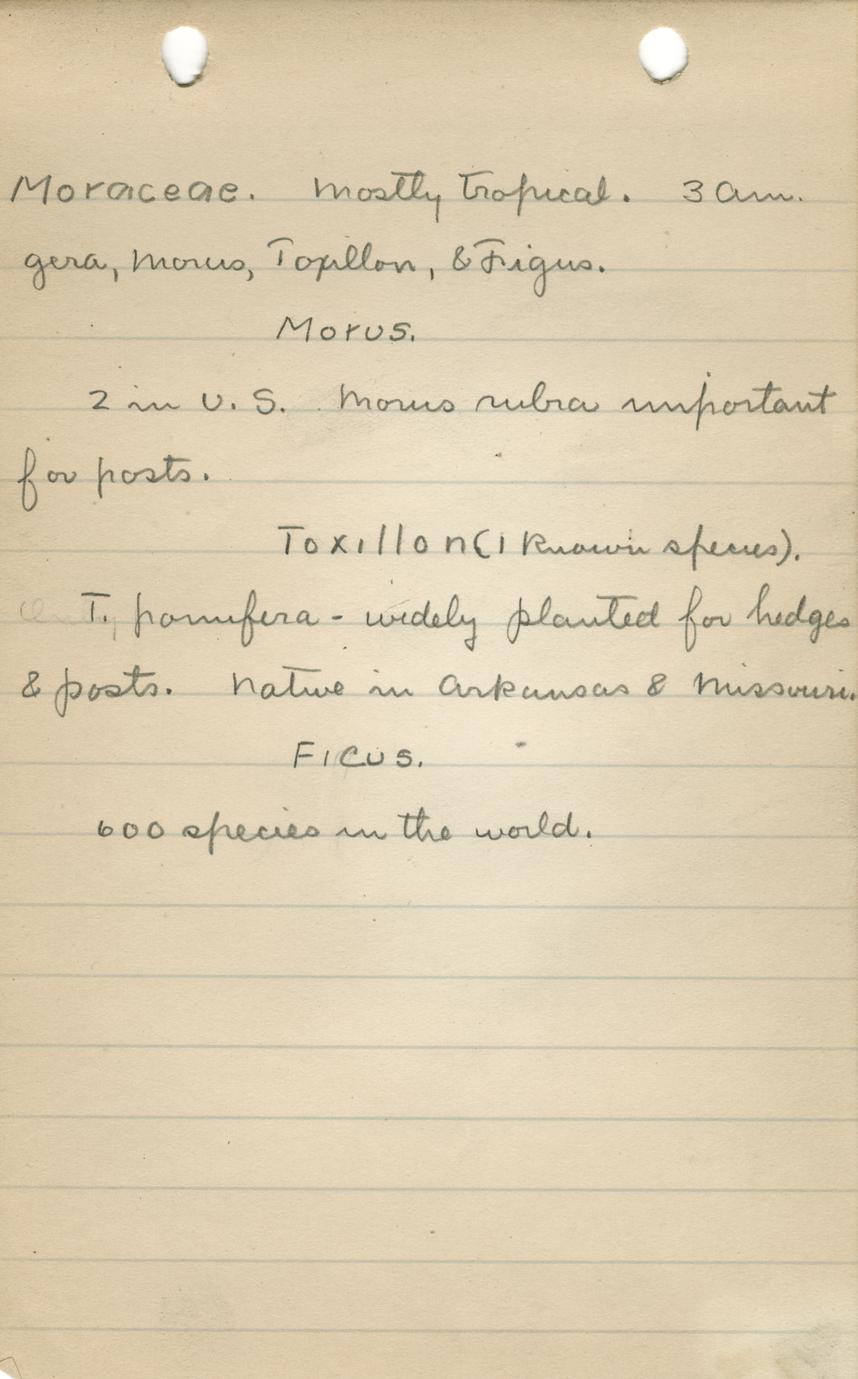 Moraceae. Mostly tropical. 3 Am.
gera, Morus, Toxillon, & Figus.
Morus.
2 in U.S. Morus rubra important
for posts.
Toxillon (1 known species).
T. pomifera - widely planted for hedges
& posts. Native in Arkansas & Missouri.
Ficus.
600 species in the world.